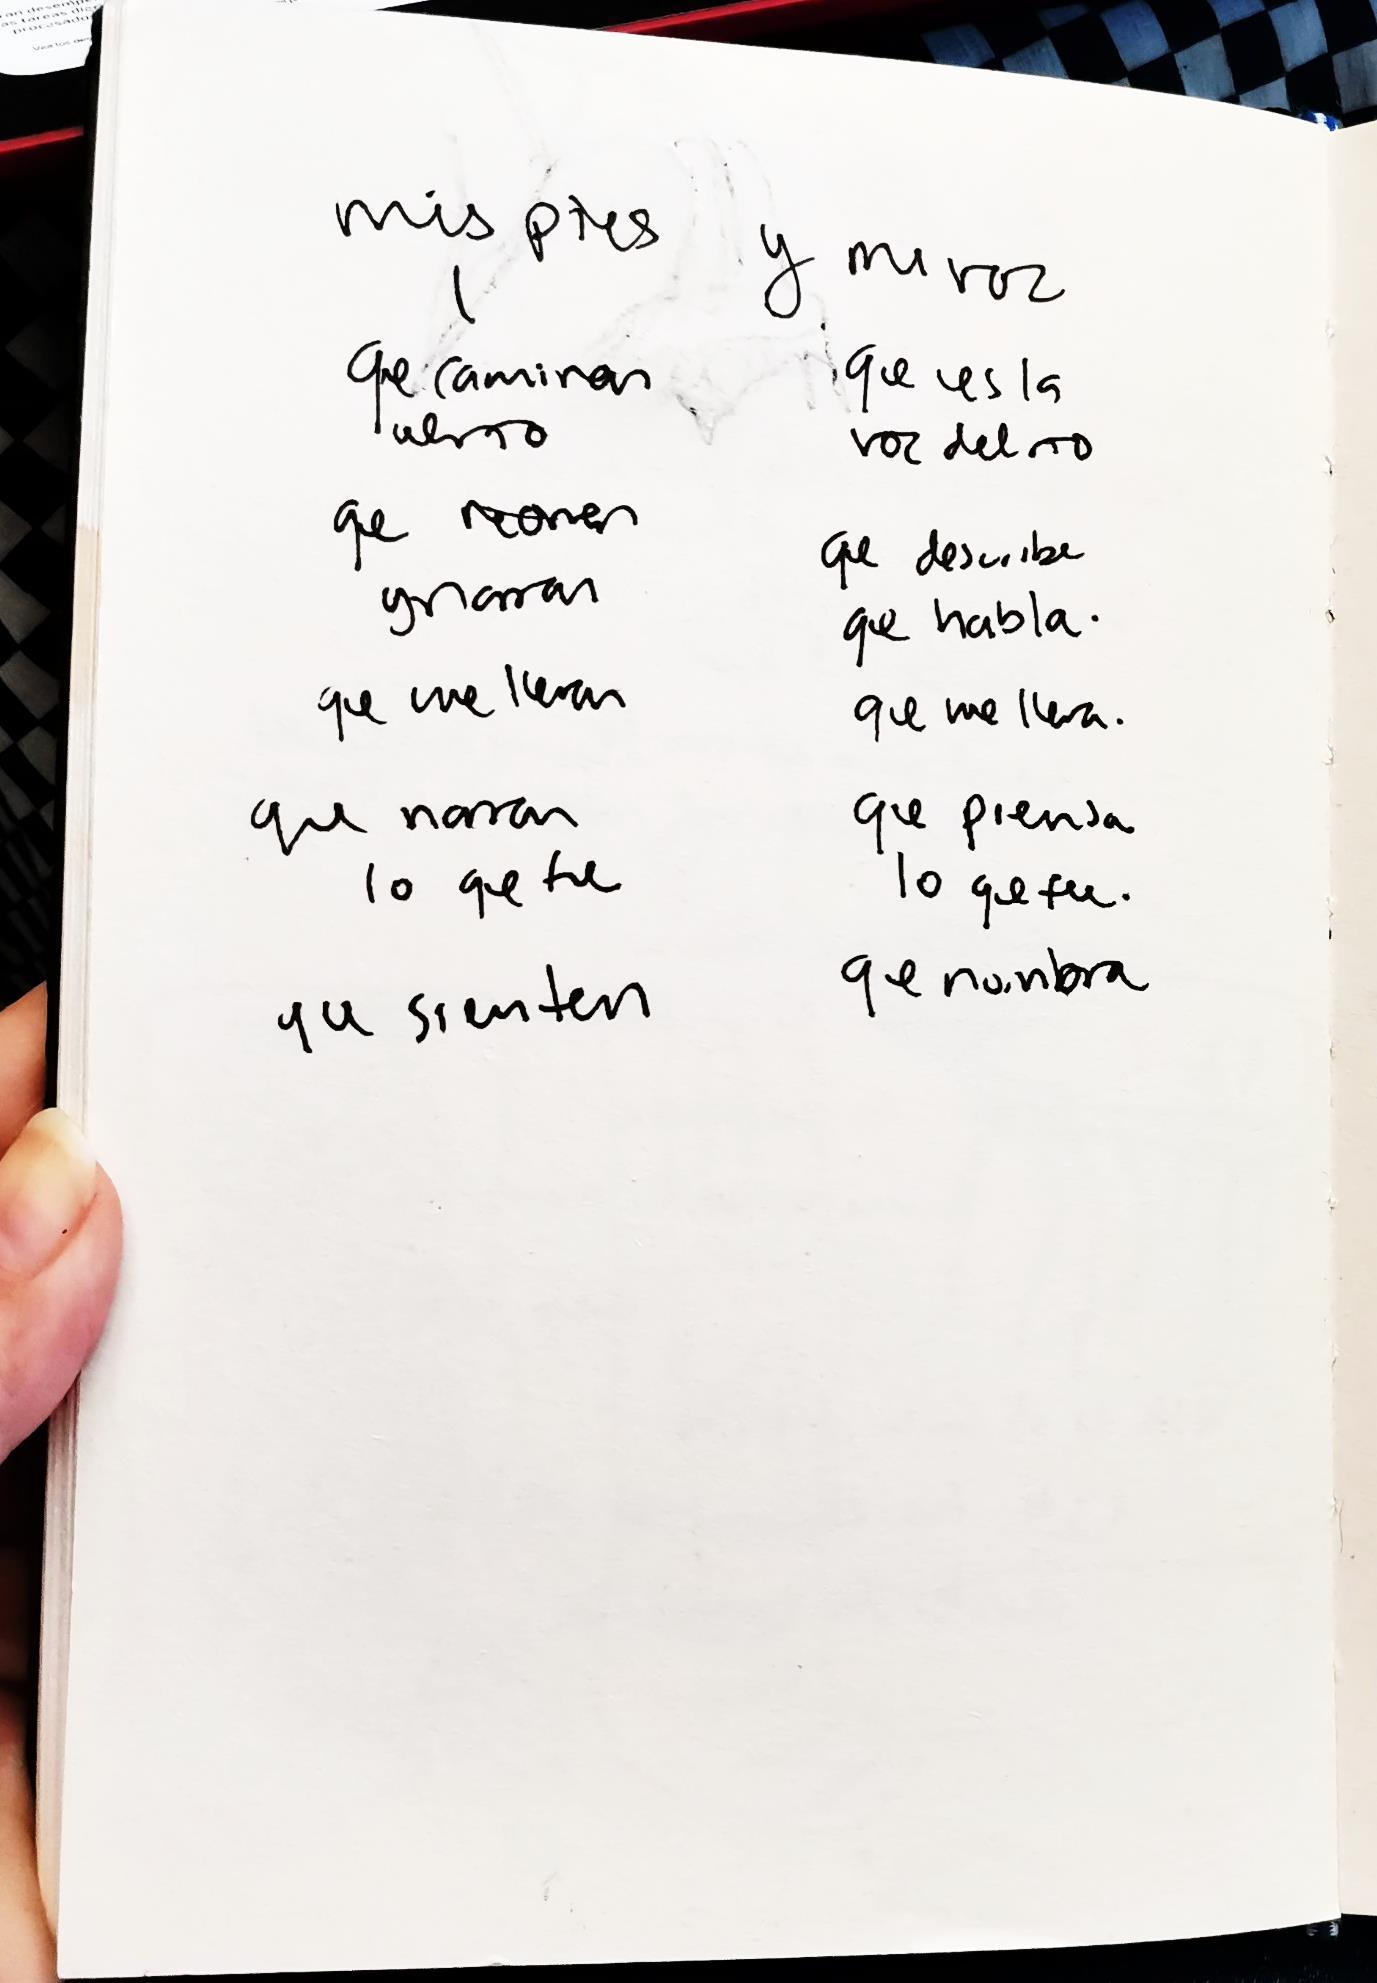 mis pies y mi voz
que caminan
el río
que recorren
y narran
que me llevan
que narran
lo que fue
que sienten
que es la
voz del río
que describe
que habla.
que me lleva.
que piensa
lo que fue.
que nombra